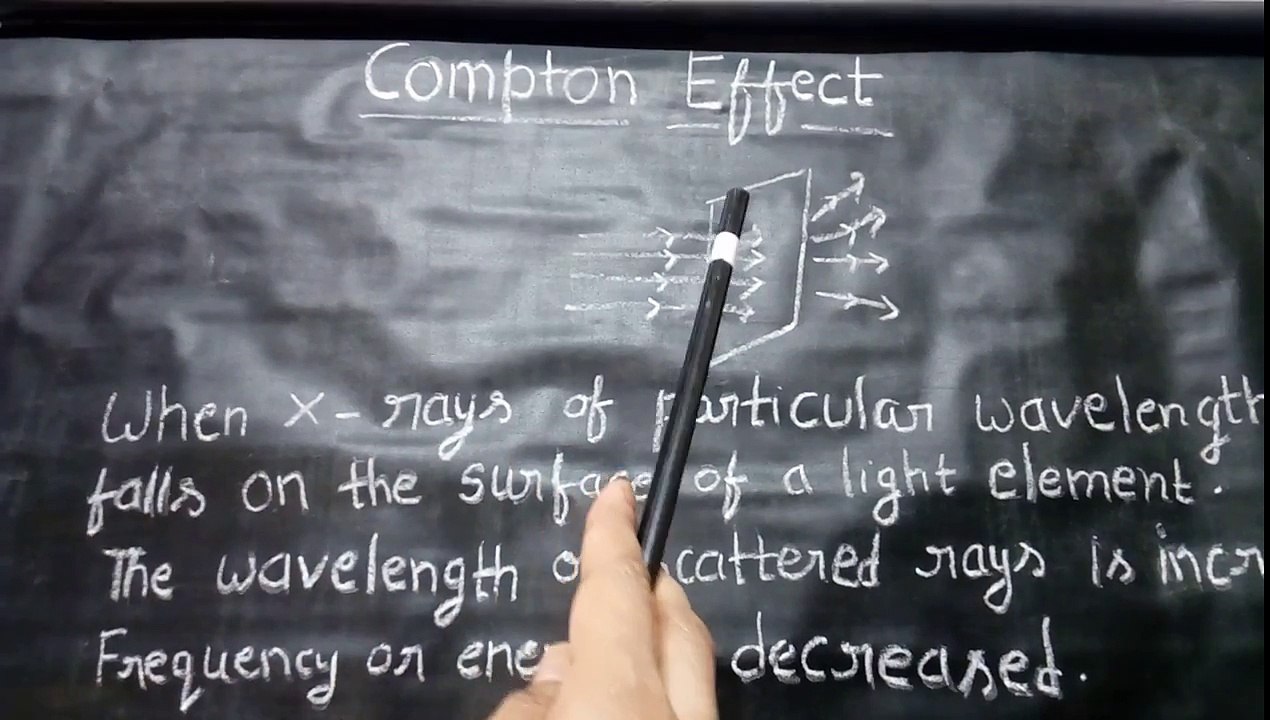 Compton Effect
When X-rays of particular wavelength
falls on the surface of a light element.
The wavelength of scattered rays is incr
Frequency or ene decreased.